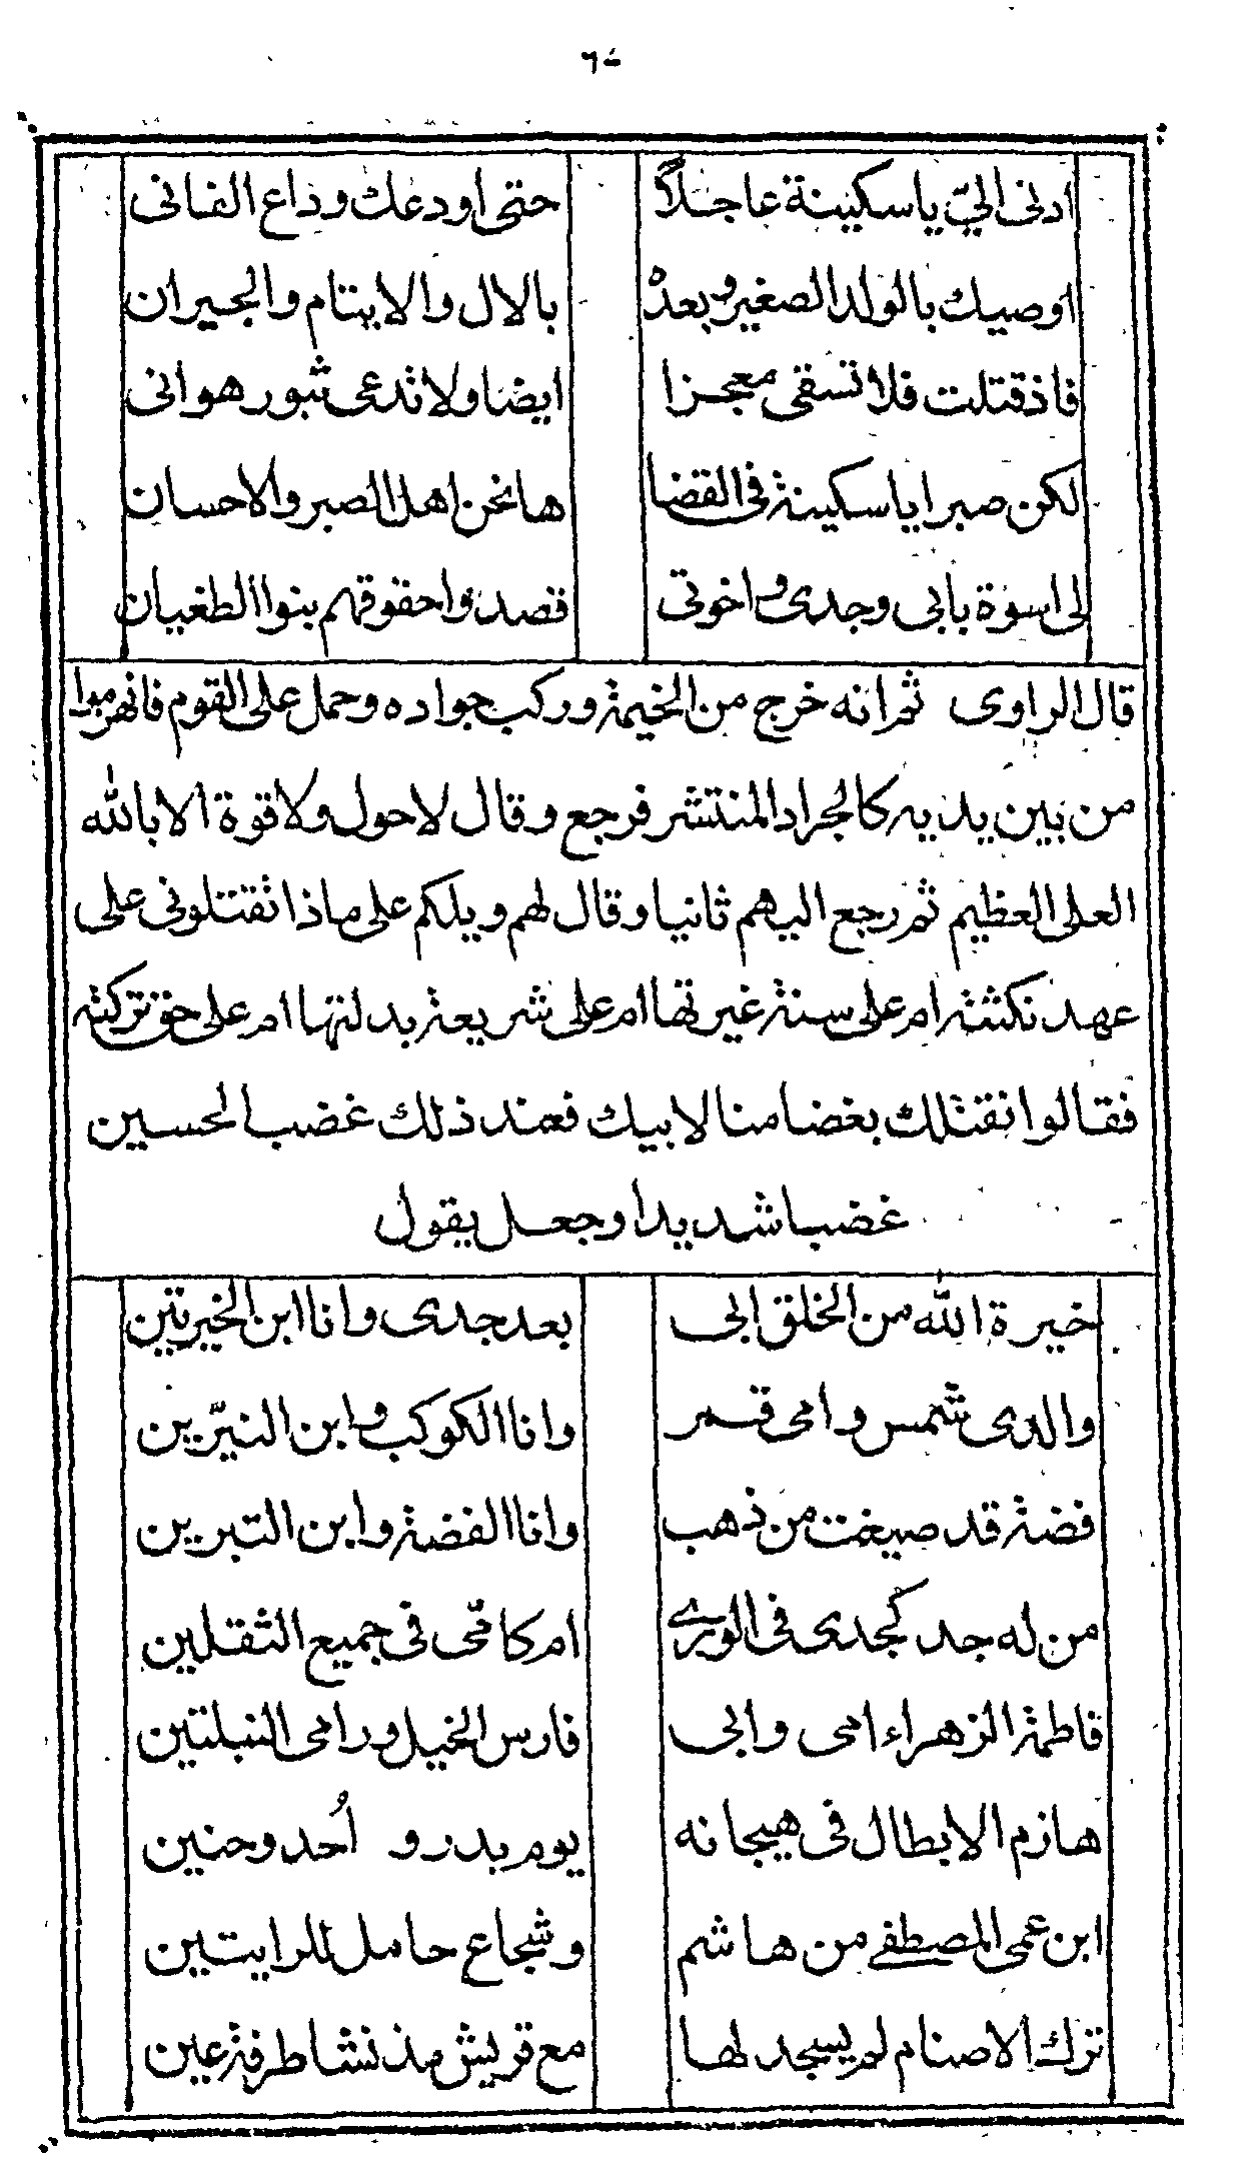 ٦٠
ادنى اليّ يا سكينة عاجلاً حتى اودعك وداع الفانى
اوصيك بالولد الصغير وبعدهْ بالال والايتام والجيران
فاذ قتلت فلا تسقى معجزا ايضا ولا تدعى ثبور هوانى
لكن صبرا يا سكينة فى القضا ها نحن اهل الصبر والاحسان
لى اسوة بابى وجدى واخوتى قصدوا حقوقهم بنوا الطغيان
قال الراوى ثم انه خرج من الخيمة وركب جواده وحمل على القوم فانهزموا
من بين يديه كالجراد المنتشر فرجع وقال لاحول ولا قوة الا بالله
العلى العظيم ثم رجع اليهم ثانيا وقال لهم ويلكم على ماذا تقتلونى على
عهد نكثته ام على سنة غيرتها ام على شريعة بدلتها ام على حق تركته
فقالوا نقتلك بغضا منا لابيك فعند ذلك غضب الحسين
غضبا شديدا وجعل يقول
خيرة الله من الخلق ابى بعد جدى وانا ابن الخيرتين
والدى شمس وامى قمر وانا الكوكب وابن النيّرين
فضة قد صيغت من ذهب وانا الفضة وابن التبرين
من له جد كجدى فى الورى ام كامّى فى جميع الثقلين
فاطمة الزهراء امى وابى فارس الخيل ورامى النبلتين
هازم الابطال فى هيجانه يوم بدر و اُحد وحنين
ابن عمى المصطفى من هاشم وشجاع حامل للرايتين
ترك الاصنام لم يسجد لها مع قريش مذ نشا طرفة عين